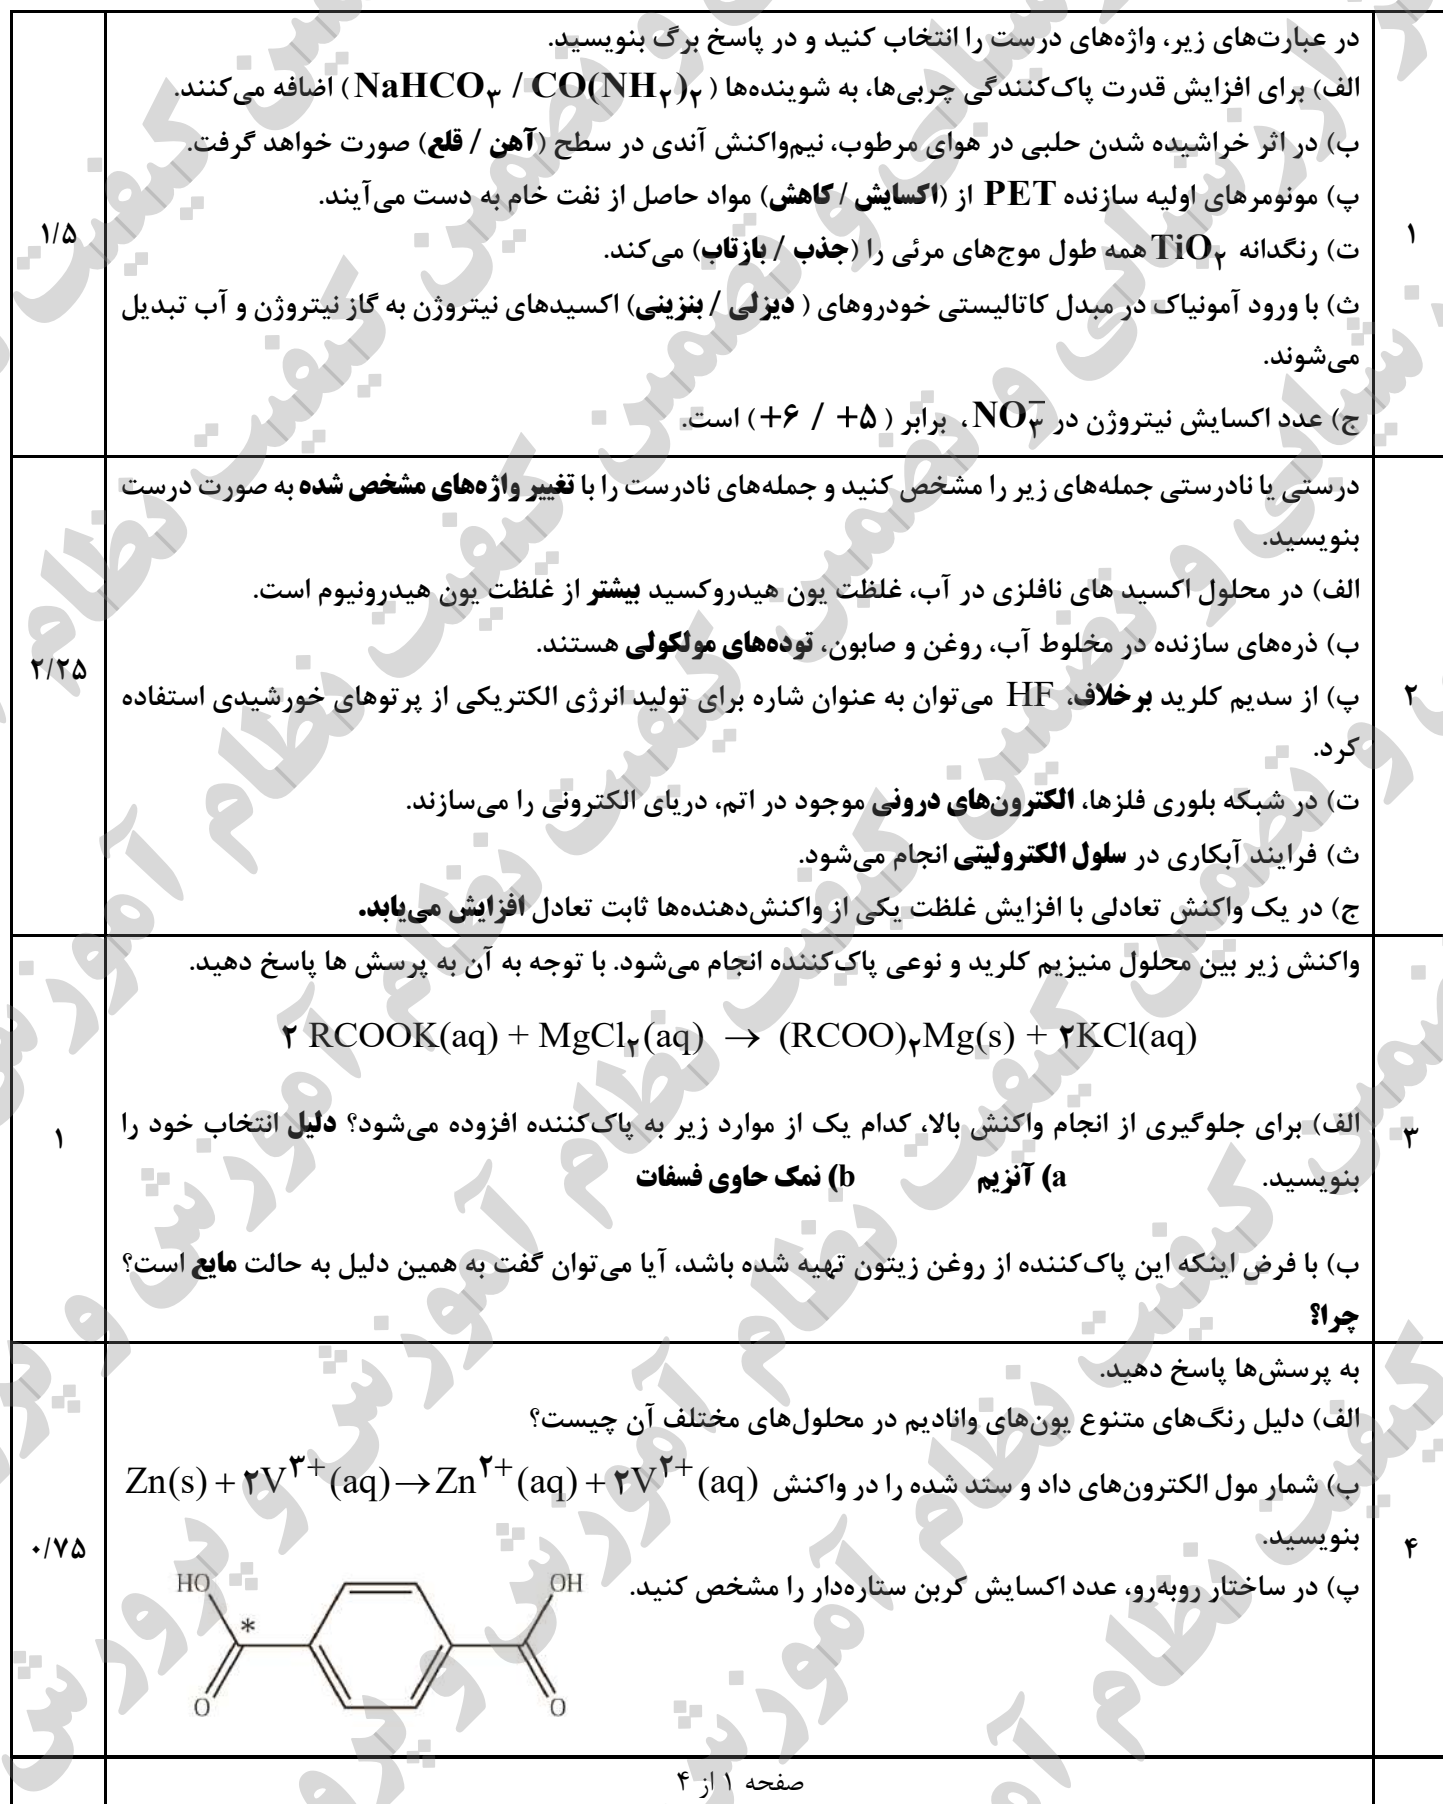 در عبارت‌های زیر، واژه‌های درست را انتخاب کنید و در پاسخ برگ بنویسید.
الف) برای افزایش قدرت پاک‌کنندگی چربی‌ها، به شوینده‌ها ( NaHCO۳ / CO(NH۲)۲ ) اضافه می‌کنند.
ب) در اثر خراشیده شدن حلبی در هوای مرطوب، نیم‌واکنش آندی در سطح (آهن / قلع) صورت خواهد گرفت.
پ) مونومرهای اولیه سازنده PET از (اکسایش / کاهش) مواد حاصل از نفت خام به دست می‌آیند.
۱/۵
۱
ت) رنگدانه TiO۲ همه طول موج‌های مرئی را (جذب / بازتاب) می‌کند.
ث) با ورود آمونیاک در مبدل کاتالیستی خودروهای ( دیزلی / بنزینی) اکسیدهای نیتروژن به گاز نیتروژن و آب تبدیل
می‌شوند.
ج) عدد اکسایش نیتروژن در NO۳⁻ ، برابر ( ۵+ / ۶+ ) است.
درستی یا نادرستی جمله‌های زیر را مشخص کنید و جمله‌های نادرست را با تغییر واژه‌های مشخص شده به صورت درست
بنویسید.
الف) در محلول اکسید های نافلزی در آب، غلظت یون هیدروکسید بیشتر از غلظت یون هیدرونیوم است.
ب) ذره‌های سازنده در مخلوط آب، روغن و صابون، توده‌های مولکولی هستند.
۲/۲۵
۲
پ) از سدیم کلرید برخلاف، HF می‌توان به عنوان شاره برای تولید انرژی الکتریکی از پرتوهای خورشیدی استفاده
کرد.
ت) در شبکه بلوری فلزها، الکترون‌های درونی موجود در اتم، دریای الکترونی را می‌سازند.
ث) فرایند آبکاری در سلول الکترولیتی انجام می‌شود.
ج) در یک واکنش تعادلی با افزایش غلظت یکی از واکنش‌دهنده‌ها ثابت تعادل افزایش می‌یابد.
واکنش زیر بین محلول منیزیم کلرید و نوعی پاک‌کننده انجام می‌شود. با توجه به آن به پرسش ها پاسخ دهید.
۲ RCOOK(aq) + MgCl۲(aq) → (RCOO)۲Mg(s) + ۲KCl(aq)
الف) برای جلوگیری از انجام واکنش بالا، کدام یک از موارد زیر به پاک‌کننده افزوده می‌شود؟ دلیل انتخاب خود را
۱
۳
بنویسید. a) آنزیم b) نمک حاوی فسفات
ب) با فرض اینکه این پاک‌کننده از روغن زیتون تهیه شده باشد، آیا می‌توان گفت به همین دلیل به حالت مایع است؟
چرا؟
به پرسش‌ها پاسخ دهید.
الف) دلیل رنگ‌های متنوع یون‌های وانادیم در محلول‌های مختلف آن چیست؟
ب) شمار مول الکترون‌های داد و ستد شده را در واکنش Zn(s) + ۲V^۳+(aq) → Zn^۲+(aq) + ۲V^۲+(aq)
بنویسید.
۰/۷۵
۴
پ) در ساختار روبه‌رو، عدد اکسایش کربن ستاره‌دار را مشخص کنید.
HO
OH
*
O
O
صفحه ۱ از ۴